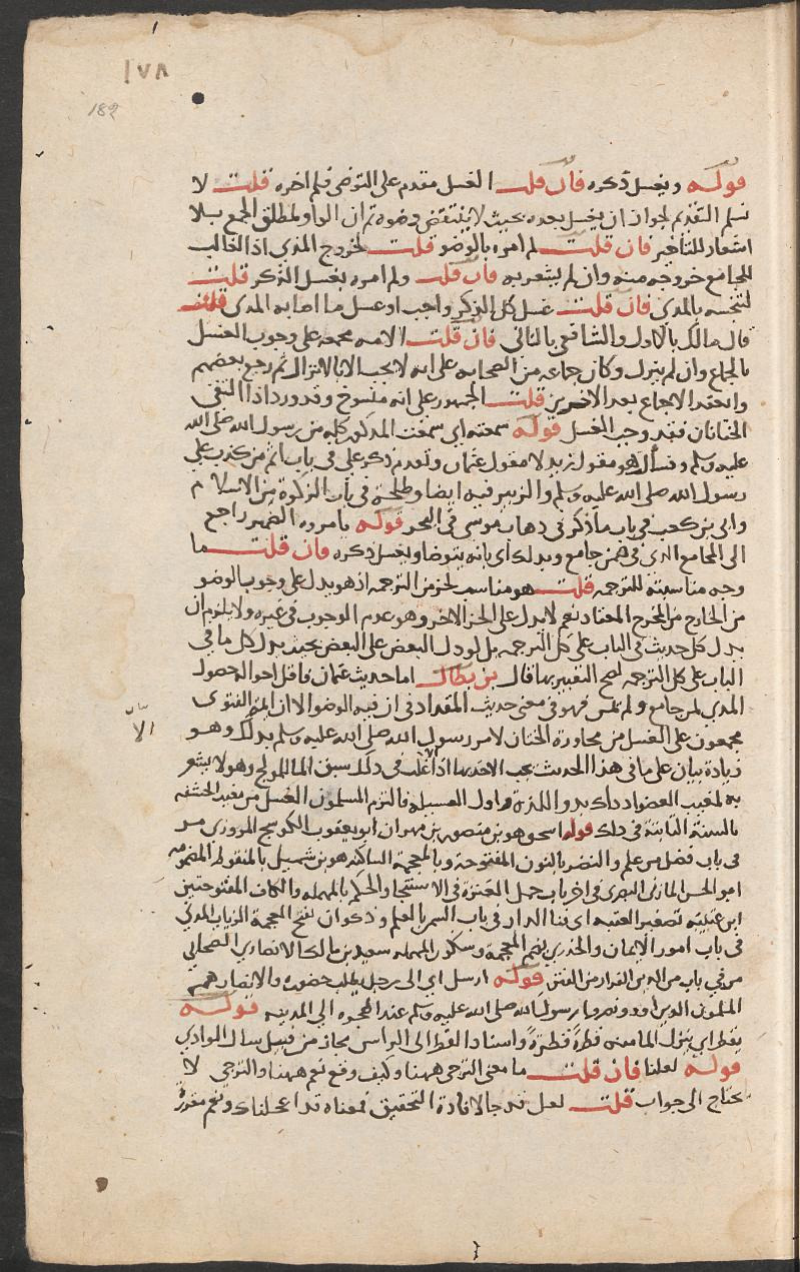 ١٧٨
182
قوله ويغسل ذكره فان قلت الغسل مقدم على التوضى فلم اخره قلت لا
نسلم التقديم لجواز ان يغسل بعده بحيث لا ينتقض وضوه ثم ان الواو لمطلق الجمع بلا
اشعار للتأخير فان قلت لم امره بالوضو قلت لخروج المذي اذ الغالب
للمجامع خروجه منه وان لم يشعر به فان قلت ولم امره بغسل الذكر قلت
لتنجسه بالمذي فان قلت غسل كل الذكر واجب او غسل ما اصابه المذي قلت
قال مالك بالاول والشافعي بالثاني فان قلت الامه مجمعه على وجوب الغسل
بالجماع وان لم ينزل وكان جماعه من الصحابه على انه لا يجب الا بالانزال ثم رجع بعضهم
وانعقد الاجماع بعد الاخرين قلت الجمهور على انه منسوخ وقد ورد اذا التقى
الختانان فقد وجب الغسل قوله سمعته اي سمعت المذكور كله من رسول الله صلى الله
عليه وسلم و فسألت هو مقول زيد لا مقول عثمان وتقدم ذكر علي في باب اثم من كذب على
رسول الله صلى الله عليه وسلم والزبير فيه ايضا وطلحة في باب الزكوة من الاسلام
وابي بن كعب في باب ما ذكر في ذهاب موسى في البحر قوله يامروه الضمير راجع
الى المجامع الذي في ضمن جامع وبذلك اي بانه يتوضا ويغسل ذكره فان قلت ما
وجه مناسبته للترجمه قلت هو مناسب لجزء من الترجمه اذ هو يدل على وجوب الوضو
من الخارج من المخرج المعتاد نعم لا يدل على الجزء الاخر وهو عدم الوجوب في غيره ولا يلزم ان
يدل كل حديث في الباب على كل الترجمه بل لو دل البعض على البعض بحيث يدل كل ما في
الباب على كل الترجمه لصح التعبير بها قال بن بطال اما حديث عثمان فاقل احواله حصول
المذي لمن جامع ولم يمن فهو في معنى حديث المقداد في ان فيه الوضو الا ان ائمة الفتوى
مجمعون على الغسل من مجاوزة الختان لامر رسول الله صلى الله عليه وسلم بذلك وهو
الا
زيادة بيان على ما في هذا الحديث يجب الاخذ بها اذ اغلب في ذلك سبق الما للمولج وهو لا يشعر
به لمغيب العضو اذ ذاك بدو اللذة واول العسيلة فالتزم المسلمون الغسل من مغيب الحشفه
بالسنة الثابتة في ذلك قوله اسحق هو بن منصور بن بهرام ابو يعقوب الكوسج المروزي مر
في باب فضل من علم والنضر بالنون المفتوحة وبالمعجمة الساكنه هو بن شميل بالمنقوطه المضمومه
ابو الحسن المازني البصري في اخر باب حمل العنزة في الاستنجا والحكم بالمهمله والكاف المفتوحتين
ابن عتيبة تصغير العتبه اي فنا الدار في باب السمر بالعلم وذكوان بفتح المعجمة الزيات المدني
في باب امور الايمان والخدري بضم المعجمة وسكون المهمله سعيد بن مالك الانصاري الصحابي
مر في باب من الدين الفرار من الفتن قوله ارسل اي الى رجل يطلب حضوره والانصار هم
المسلمون الذين اووا ونصروا رسول الله صلى الله عليه وسلم عند الهجرة الى المدينه قوله
يقطر اي ينزل الما منه قطرة قطرة واسناد القطر الى الراس مجاز من قبيل سال الوادي
قوله لعلنا فان قلت ما معنى الترجى ههنا وكيف وقع نعم ههنا والترجى لا
يحتاج الى جواب قلت لعل قد جا لافادة التحقيق فمعناه قد اعجلناك ونعم مقررة